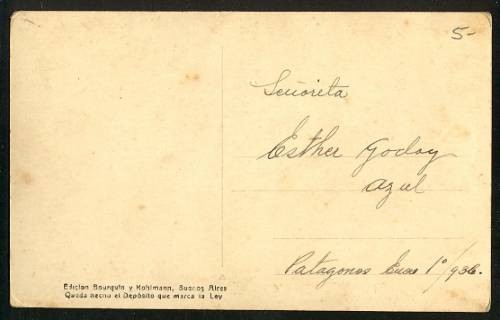 5-
Señorita
Esther Godoy
Azul
Patagones Enero 1º/936.
Edicion Bourquin y Kohlmann, Buenos Aires
Queda hecho el Depósito que marca la Ley